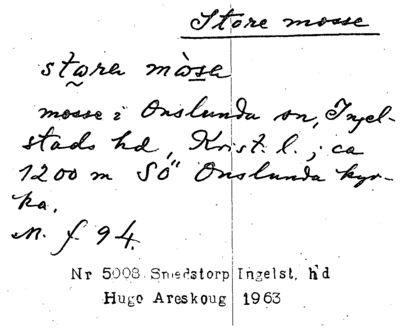 Store mosse
stωra mòsa
mosse i Onslunda sn, Ingel-
stads hd, Krist. l.; ca
1200 m SÖ Onslunda kyr-
ka.
N. f. 94.
Nr 5008 Smedstorp Ingelst. hd
Hugo Areskoug 1963